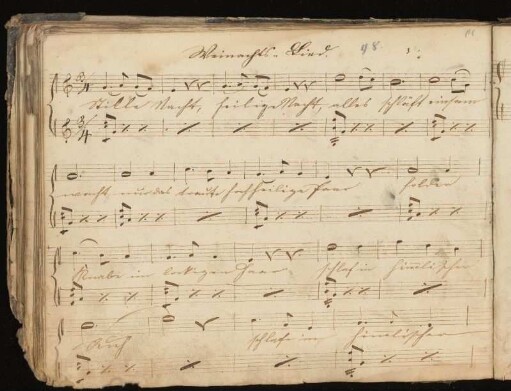 Weinachts-Lied. 98.
Stille Nacht, heilige Nacht, alles schläft einsam
wacht nur das traute hochheilige Paar holder
Knabe im lockigen Haar, schlaf in himlischer
Ruh schlafe in himlischer